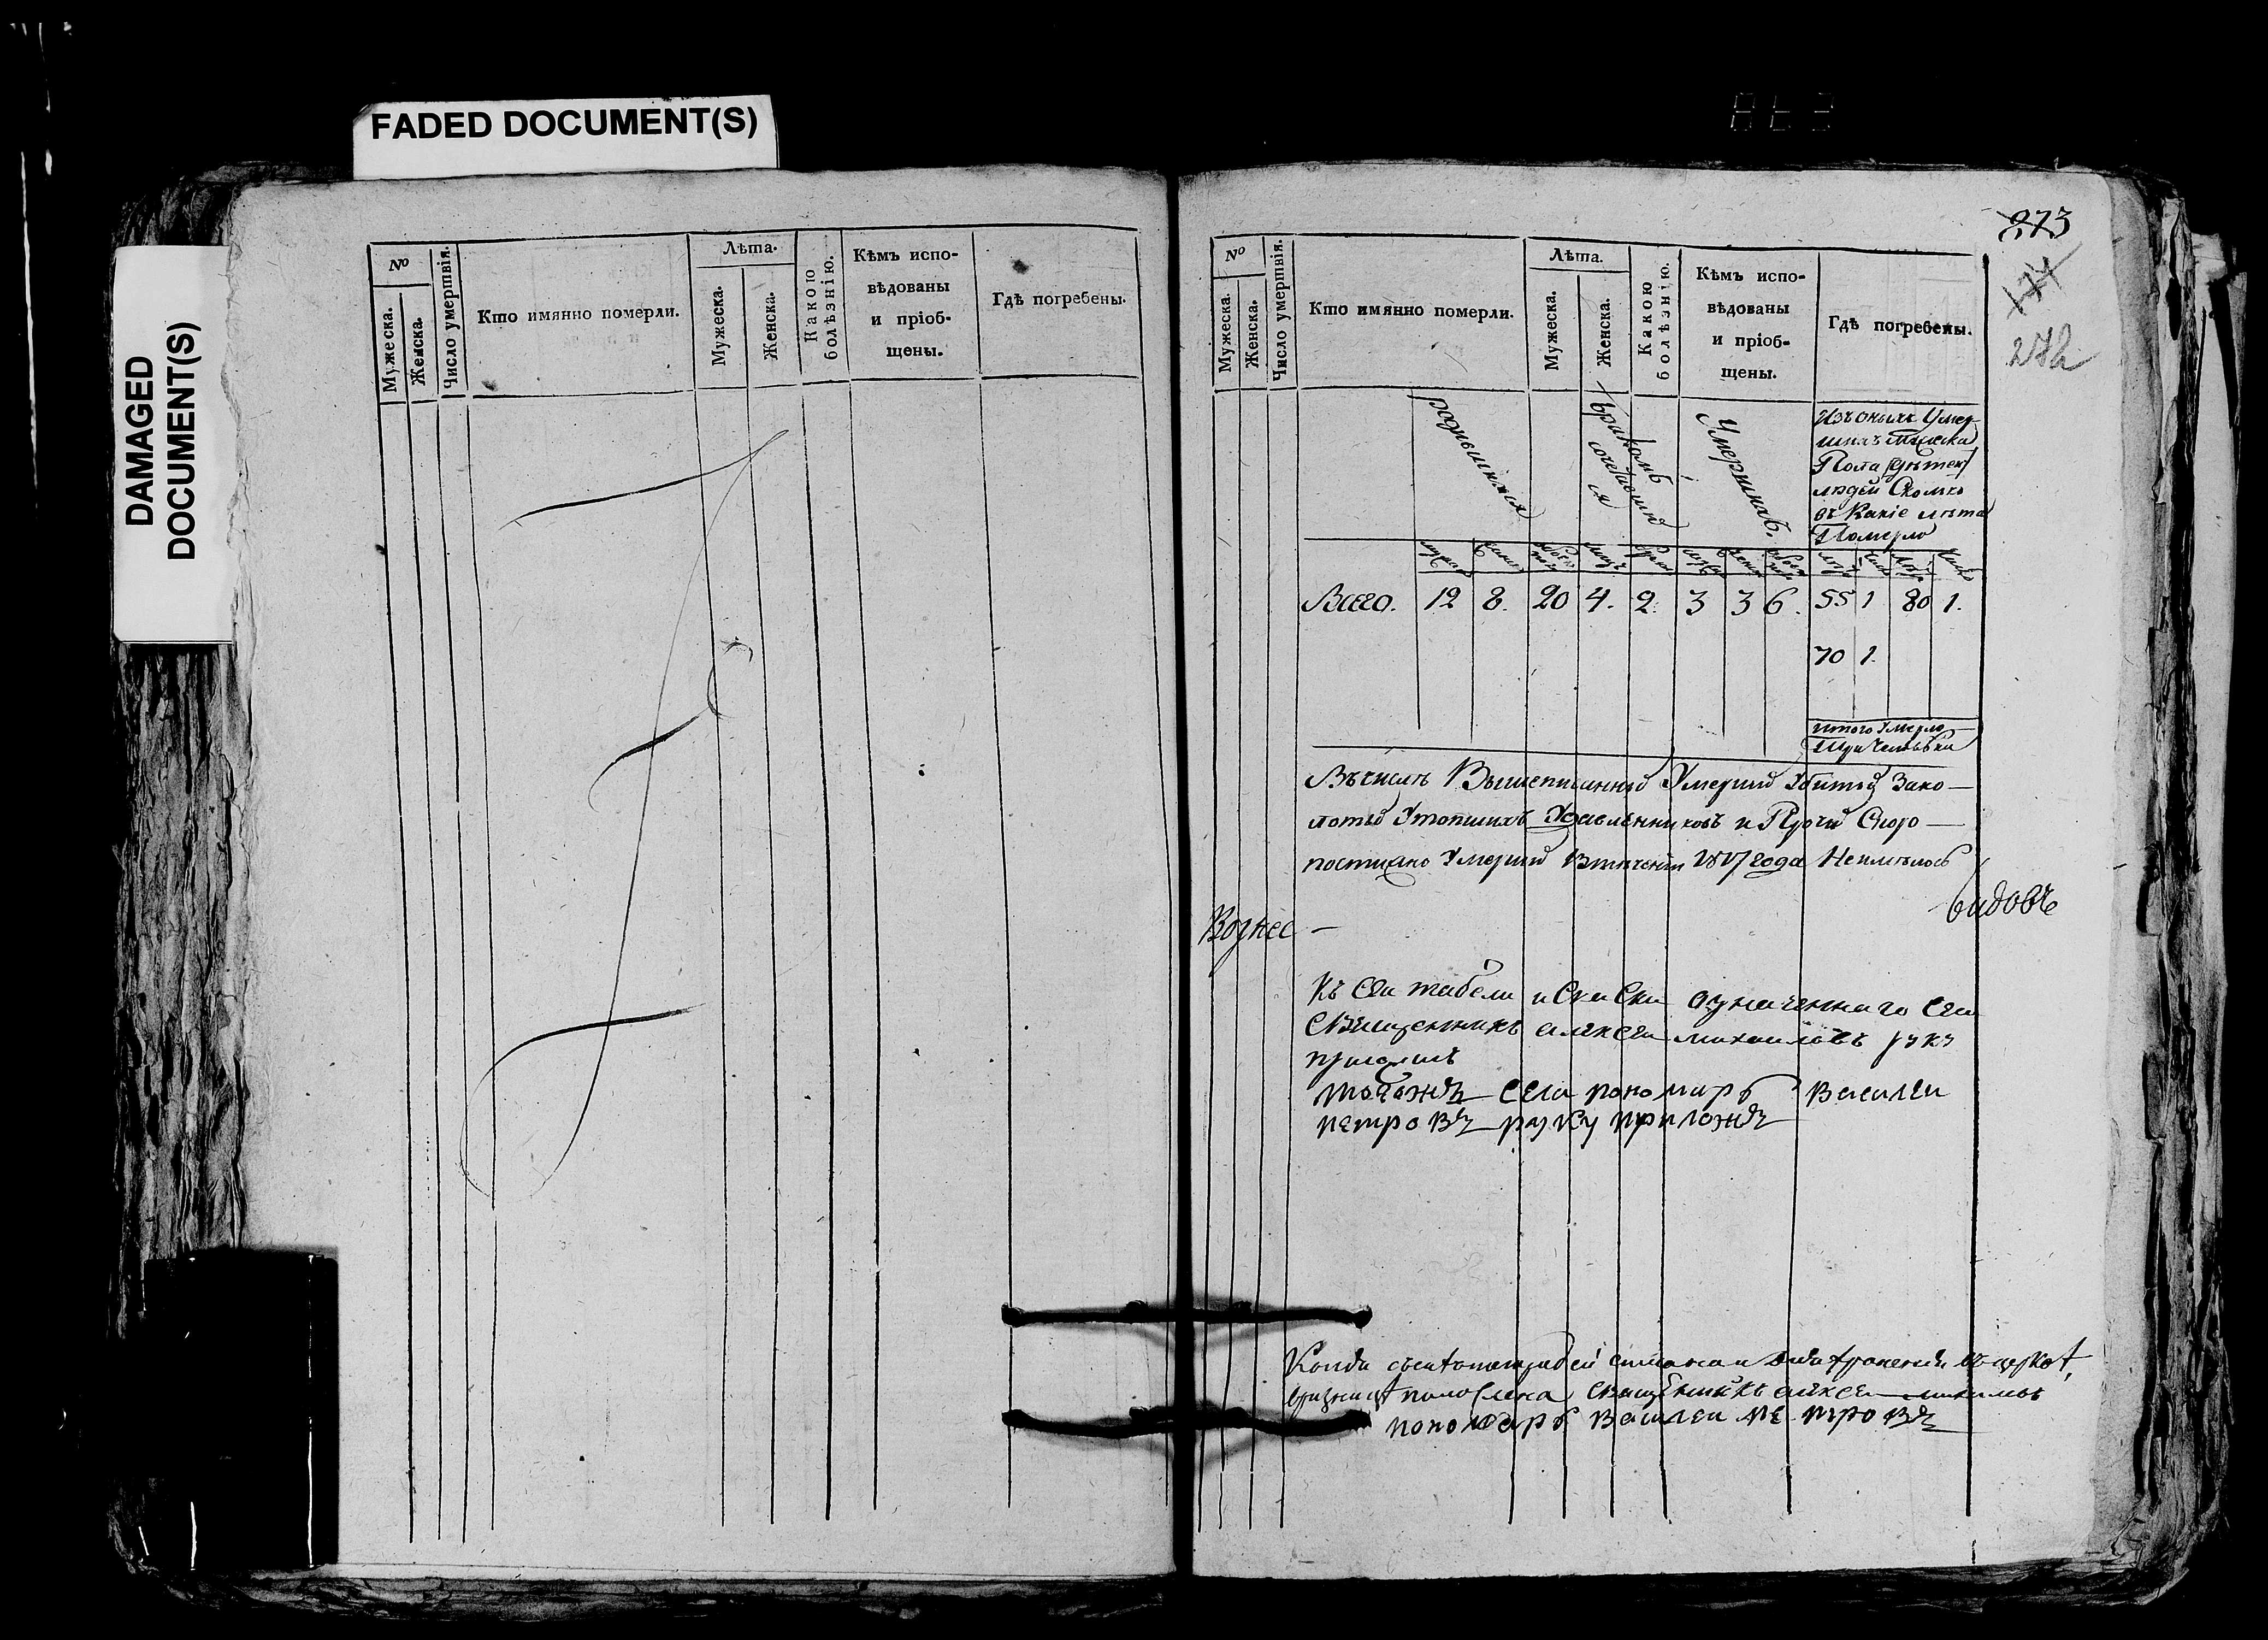 FADED DOCUMENT(S)
DAMAGED
DOCUMENT(S)
№
Мужеска.
Женска.
Число умертвія.
Кто имянно померли.
Лѣта.
Мужеска.
Женска.
Какою
болѣзнію.
Кѣмъ испо-
вѣдованы
и пріоб-
щены.
Гдѣ погребены.
273
174
272
№
Мужеска.
Женска.
Число умертвія.
Кто имянно померли.
Лѣта.
Мужеска.
Женска.
Какою
болѣзнію.
Кѣмъ испо-
вѣдованы
и пріоб-
щены.
Гдѣ погребены.
родившихся
бракомъ
сочетавших
ся
Умершихъ.
Изъ оныхъ Умер
шихъ Мужеска
Пола
людей Сколько
въ Какіе лѣта
Померло
Всего. 12 8. 20 4. 2. 3 3 6. 55 1 80 1.
70 1.
итого Умерло
три Человѣка
Въ числѣ Вышеписанныхъ Умершихъ Убитыхъ Зако—
лотыхъ Утопшихъ Удавленниковъ и Прочихъ Скоро—
постижно Умершихъ Втеченіи 1817 года Неимѣлось
видовъ
Вознес —
Къ Сеи табели и Скаски означеннаго Села
Священникъ Алексеи Михаиловъ руку
приложилъ
тогожъ Села пономарь Василеи
петровъ руку приложилъ
Копия
положена Священникъ алексеи
пономарь Василеи петровъ